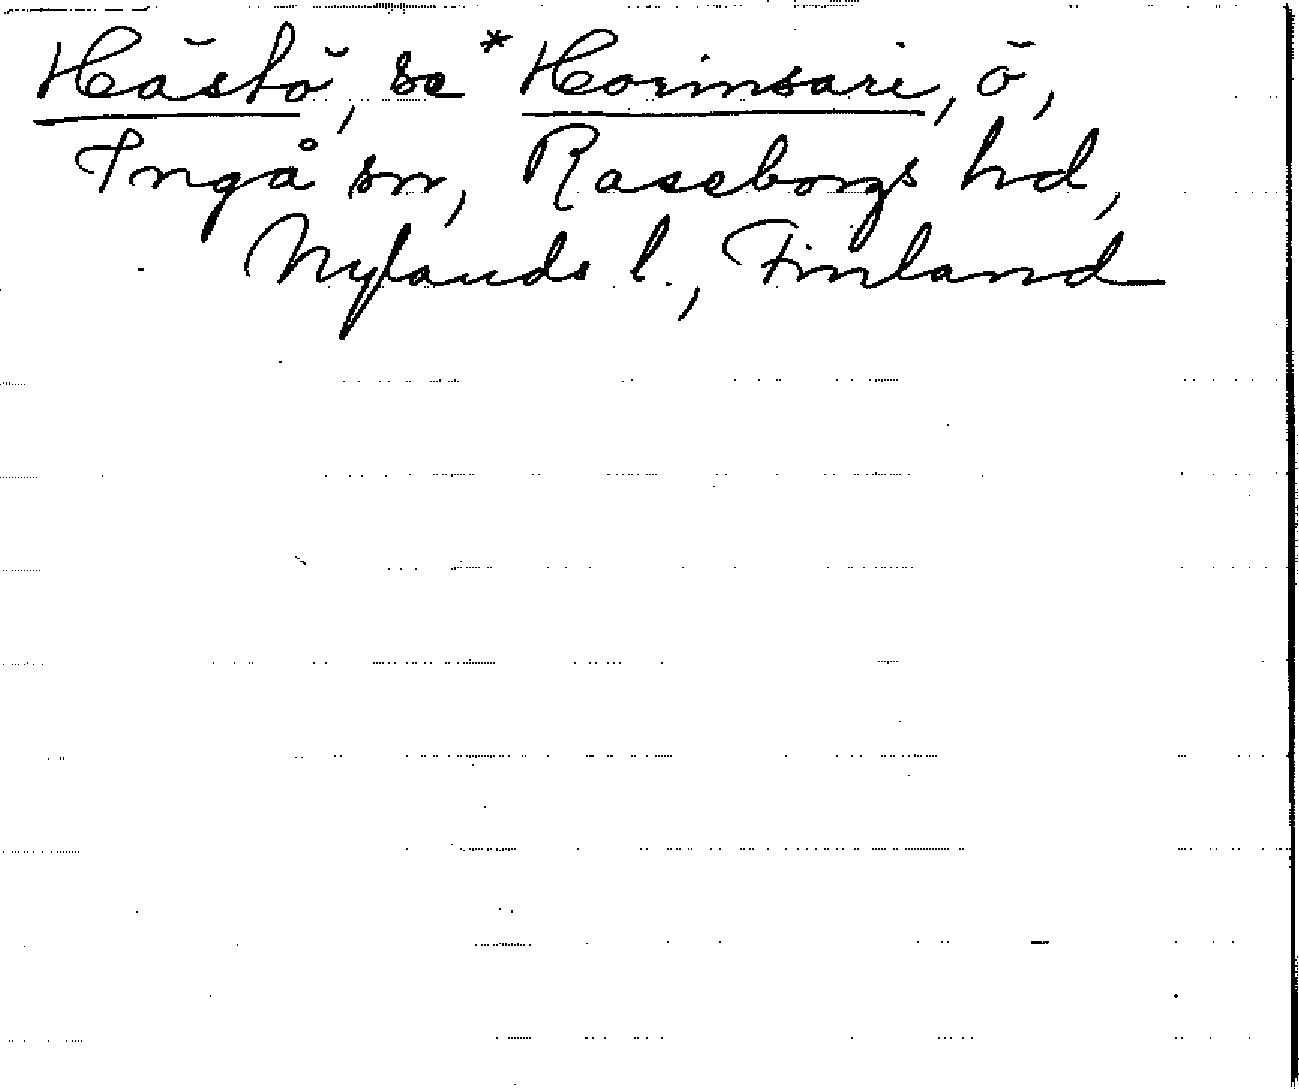 Hästö, se *Hovimsari, ö,
Ingå sn, Raseborgs hd,
Nylands l., Finland